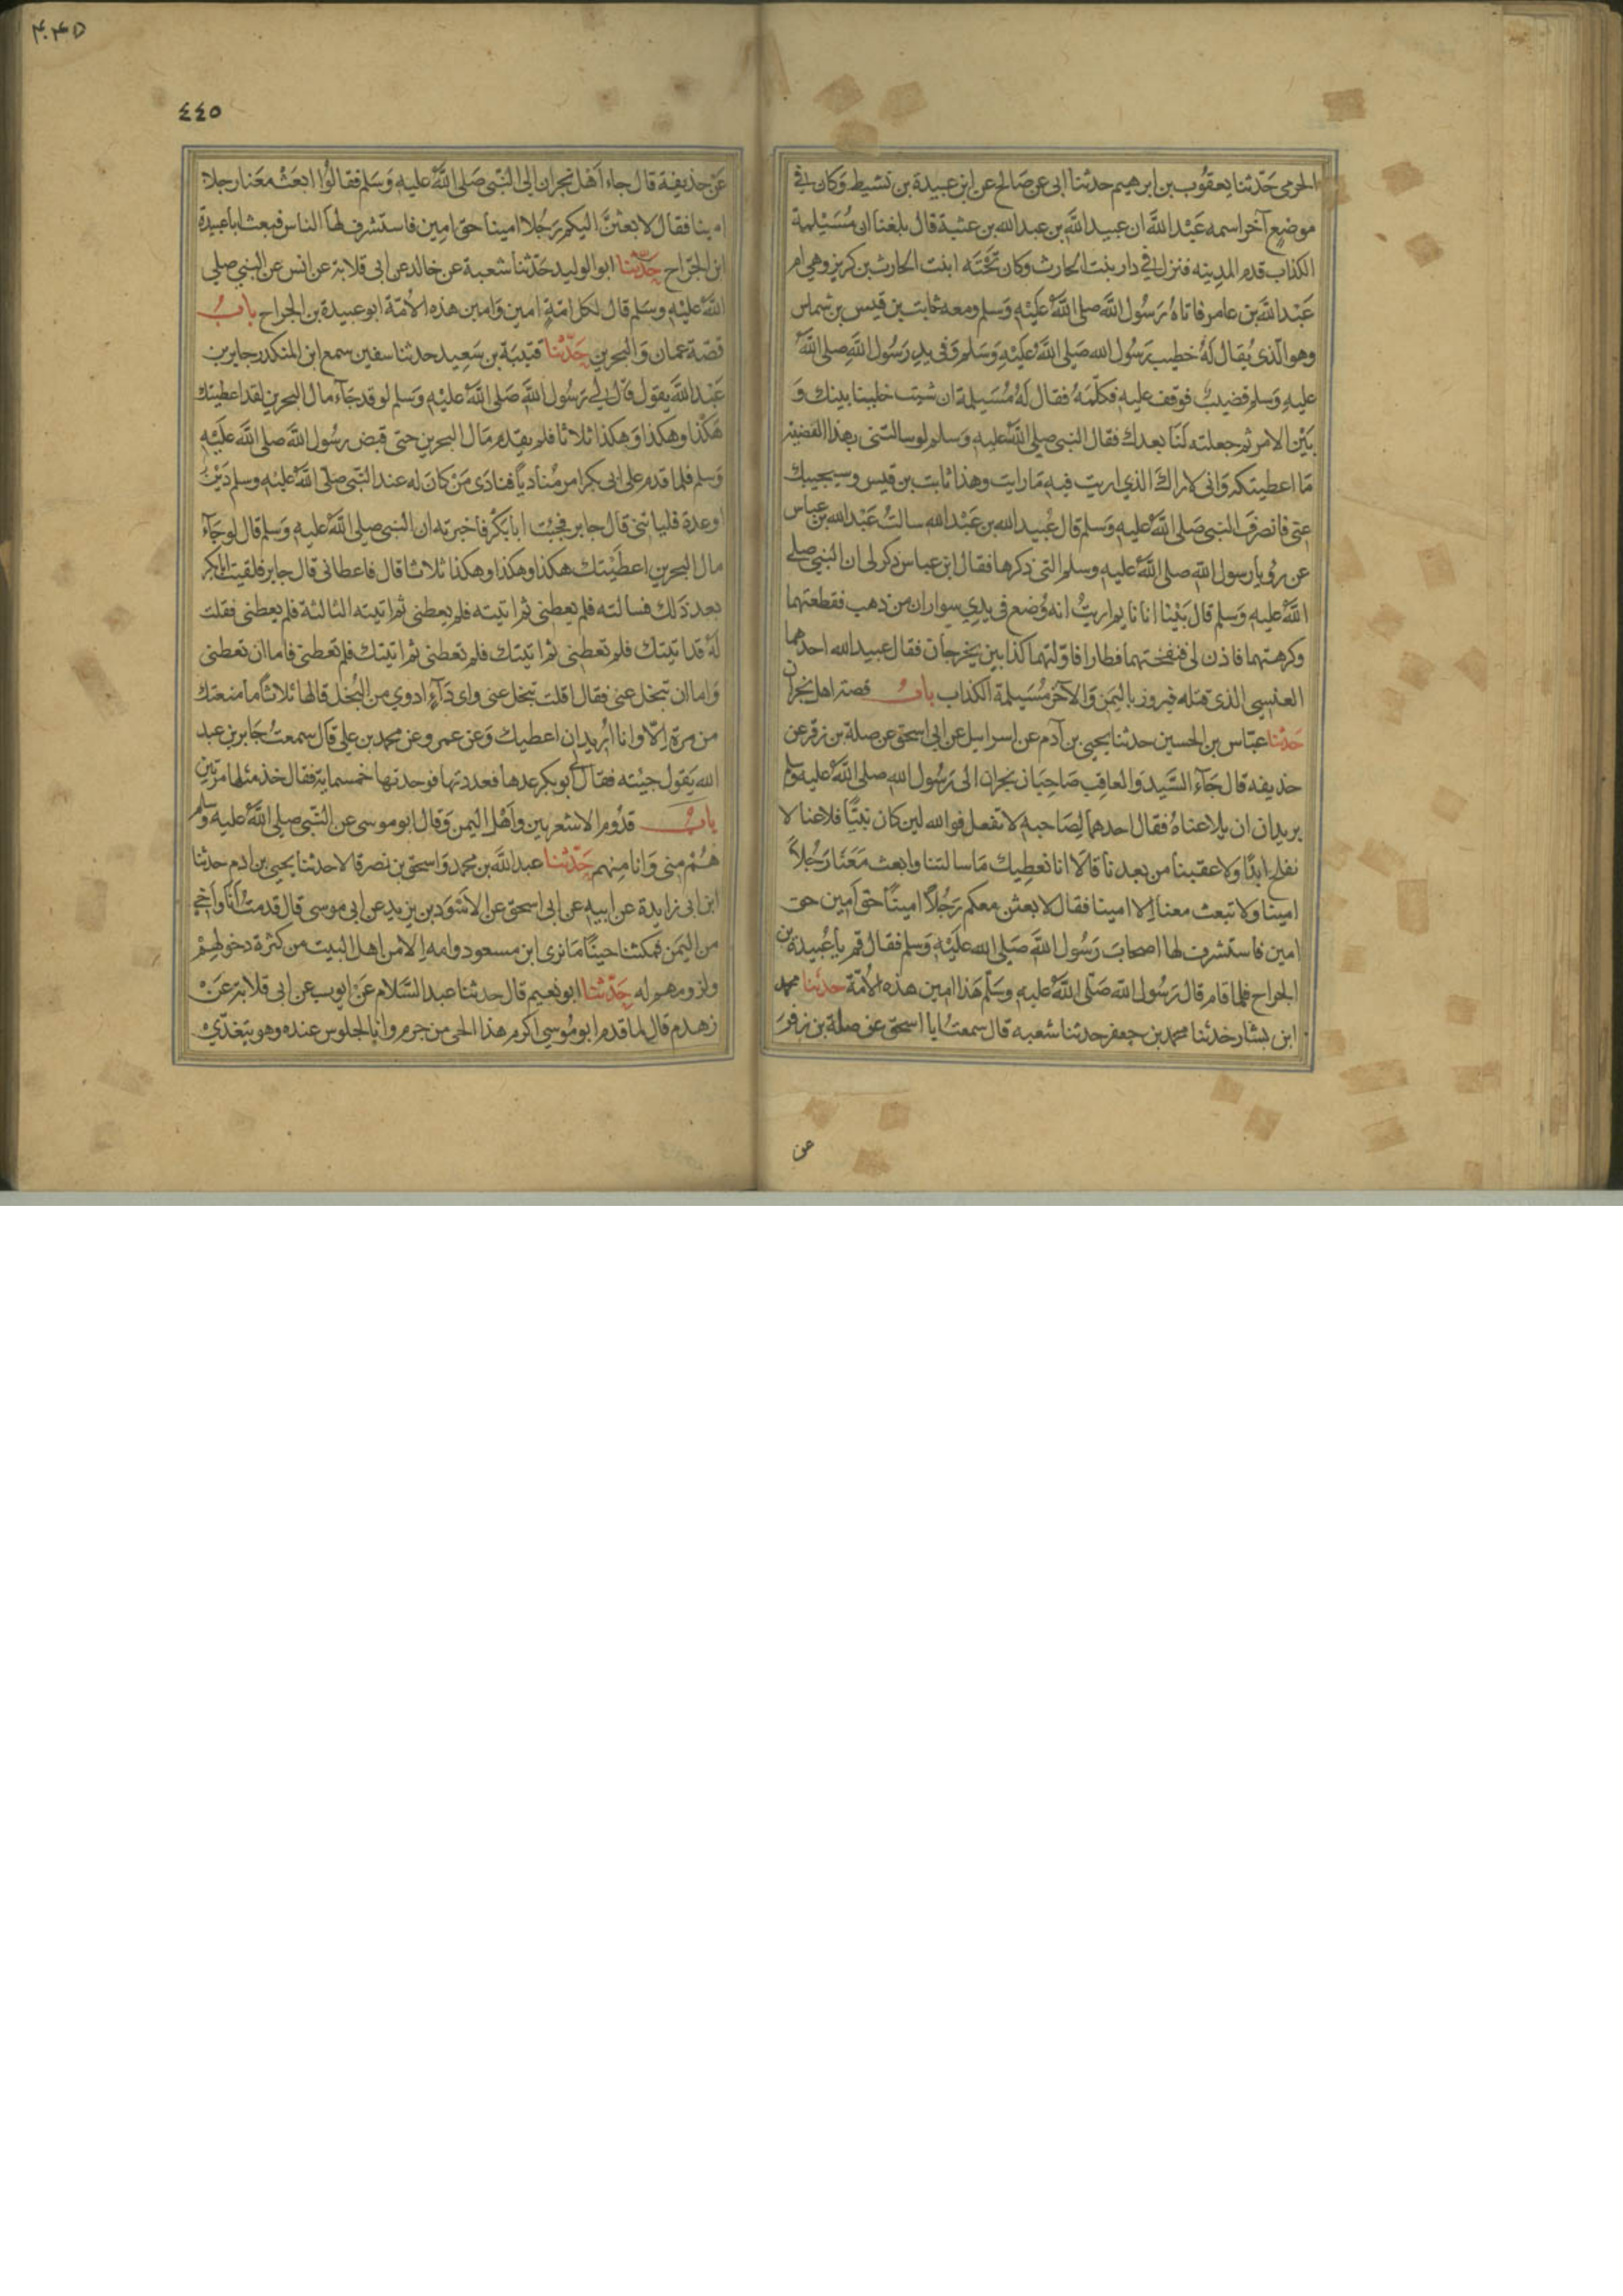 الجرمي حَدّثنا يعقوُب بن ابرهيم حدثنا ابى عن صَالح عن ابن عبيدة بن نشيط وَكان في
موضعٍ آخر اسمه عَبْد اللَّه ان عبيد اللَّه بن عبد الله بن عتبة قال بلغنا ان مُسَيْلمة
الكذاب قدم المدينه فنزل في دار بنت الحارث وكان تَحْتَه ابنت الحارث بن كريز وهي ام
عَبْد اللَّه بن عامر فاتاهُ رَسُول اللَّه صلى اللَّهُ عَلَيْهِ وَسَلم ومعه ثابت بن قيس بن شماس
وهو الّذى يُقال لَهُ خطيب رَسُول الله صَلى اللَّهُ عَلَيْهِ وَسَلم وَفى يدِ رَسُول اللَّهِ صلى اللَّهُ
عليهِ وَسَلم قضيبٌ فوقف عليه فكلّمَهُ فقال لَهُ مُسَيلمة ان شيت خلينا بينك وَ
بَيْن الامر ثم جعلته لَنَا بعدك فقال النبى صلى اللَّهُ عليهِ وَسَلم لو سالتنى هذا القضيب
مَا اعطيتكه وَانى لاراك الذي اريت فيه مَا رايت وهذا ثابت بن قيس وسيجيبك
عنى فانصرفَ النبى صَلى اللَّهُ عليهِ وَسلم قال عُبيد الله بن عَبْد الله سالتُ عَبْد الله بن عباس
عن رُويا رسول اللَّهِ صلى اللَّهُ عليهِ وسلم التى ذكرها فقال ابن عباس ذكر لى ان النبى صلى
اللَّهُ عليهِ وَسَلم قال بَيْنا انا نايم اريتُ انه وُضع فى يدي سواران من ذهب فقطعتهما
وكرهتهما فاذن لى فنفختهما فطارا فاوّلتهما كذابين يخرجان فقال عبيد الله احدهما
العنسي الذى قتله فيروز باليَمَن وَالآخر مُسَيلمة الكذاب بابُ قصّة اهل نجران
حَدثنا عبّاس بن الحسين حدثنا يحيى بن آدم عن اسرايل عن ابى اسحق عن صلة بن زفر عن
حذيفه قال جَآءَ السَّيد وَالعاقب صَاحِبَا نجران الى رَسُول الله صلى اللَّهُ عليه وسلم
يريدان ان يلاعناهُ فقال احدهما لِصَاحبه لا تفعل فوالله لين كان نبيًّا فلاعنا لا
نفلح ابدًا ولا عقبنا من بعدنا قالَا انا نعطِيك مَا سالتنا وابعث مَعَنَا رَجُلاً
امينا ولا تبعث معنا اِلا امينا فقال لابعثن معكم رَجُلاً امينًا حق امين حق
امين فاستشرف لها اصحاب رَسُول اللَّه صَلى الله عَلَيْهِ وَسَلم فقال قم يا با عُبيدة بن
الجراح فلما قام قال رَسُول اللَّه صَلّى اللَّهُ عليهِ وسَلّم هَذا امين هذه الاُمّة حدثنا محمد
ابن بشار حدثنا محمد بن جعفر حدثنا شعبه قال سمعتُ ابا اسحق عن صلة بن زفرَ
عن
٤٤٥
عَن حذيفة قال جاء اَهْل نجران الى النّبى صَلى اللَّهُ عليهِ وَسَلم فقالوُا ابعَثْ معَنا رجلا
امينا فقال لابعثنَّ اليكم رَجُلا امينا حق امِين فاستشرف لها الناس فبعث ابا عبيدة
ابن الجَرّاح حَدّثنا ابو الوليد حَدّثنا شعبة عن خالد عن ابى قلابة عن انس عن النبى صلى
اللَّهُ عليْهِ وسَلم قال لكل امّةٍ امين وَامين هذه الاُمّة ابو عبيدة بن الجراح بابُ
قصّة عمان وَالبحرين حَدّثنا قتيبَة بن سَعِيد حدثنا سفين سمع ابن المنكدر جابر بن
عَبْد اللَّه يقول قال لى رَسُول اللَّه صَلى اللَّهُ عليْهِ وَسَلم لو قد جَآءَ مال البحرين لقد اعطيتك
هَكْذا وهكذا وَهكذا ثلاثا فلم يقدم مَال البحرين حتى قبض رسُول اللَّه صلى اللَّه عَلَيْهِ
وَسلم فلما قدم على ابى بكر امر مُناديًا فنادَى مَنْ كانَ له عند النَّبى صَلى اللَّهُ عليْهِ وسلم دَيْنٌ
اوعدة فلياتنى قال جابر فجيْت ابا بَكْر فاخبرته ان النبى صلى اللَّهُ عليهِ وَسَلم قال لو جَآءَ
مال البحرين اعطَيْتك هكذا وهكذا وهكذا ثلاثا قال فاعطانى قال جابر فلقيت ابا بكر
بعد ذَلك فسالته فلم يعطنى ثم اتيته فلم يعطنى ثم اتيته الثالثة فلم يعطنى فقلت
لَهُ قد اتيتك فلم تعطنى ثم اتيتك فلم تعطنى ثم اتيتك فلم تعطنى فاما ان تعطنى
وَاما ان تبخل عنى فقال اقلت تبخل عنى واى دَآءٍ ادوي من البُخل قالها ثلاثاً ما منعتك
من مرة اِلّا وانا اُريد ان اعطيك وَعن عمرو عن محمد بن على قال سمعتُ جَابر بن عبد
الله يَقول جيْته فقال لى ابو بكر عدها فعددتها فوجدتها خمسماية فقال خذ مثلها مرتين
بابُ قدُوم الاشعريين وَاَهْل اليَمن وَقال ابو موسى عن النّبى صلى اللَّهُ عليه وسلم
هُمْ منى وَانا مِنهم حَدّثنا عبد اللَّه بن محمد وَاسحق بن نصر قالا حدثنا يحيى بن ادم حدثنا
ابن ابى زايدة عن ابيه عن ابى اسحق عن الاَسْوَد بن يزيد عن ابى موسى قال قدمتُ اَنَا وَاَخى
من اليَمن فمكثنا حينًا مَا نرى ابن مسعود وامه اِلا من اهل البيت من كثرة دخولهمْ
ولزومهم له حَدّثنا ابو نعيم قال حدثنا عبد السّلام عَن ايوب عن ابى قلابة عَنْ
زهدم قال لما قدم ابو مُوسي اكرم هذا الحى من جرم وانا لجلوس عنده وهو يتغدّي